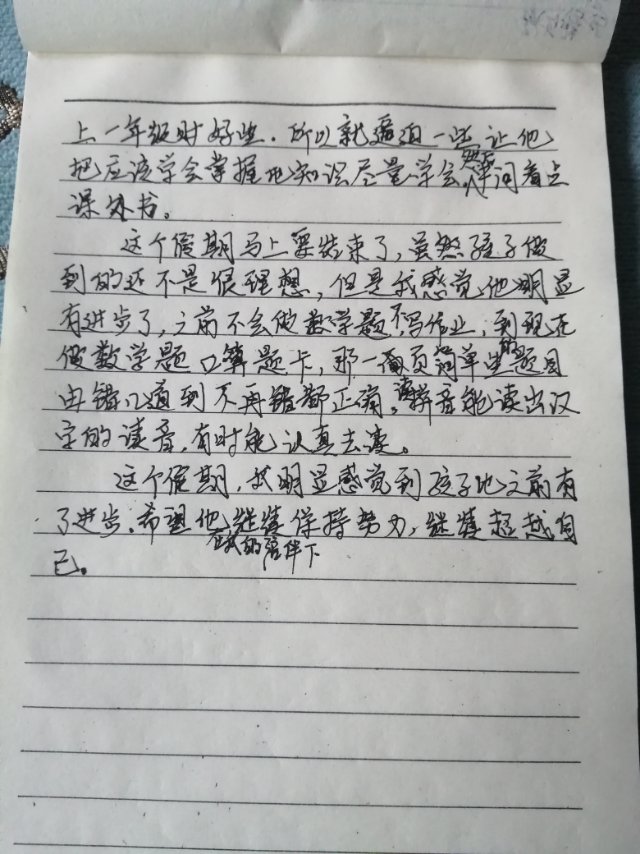 上一年级时好些.所以就逼迫一些让他
把应该学会掌握地知识尽量学会,然后
课外书。
这个假期马上要结束了,虽然孩子做
到的还不是很理想,但是我感觉他明显
有进步了,之前不会做数学题不写作业,到现在
做数学题口算题卡,那一面页简单些的题目
由错几道到不再错都正确,读拼音能读出汉
字的读音,有时能认真去读。
这个假期,我明显感觉到孩子比之前有
了进步.希望他在我的陪伴下继续保持努力,继续超越自
己。